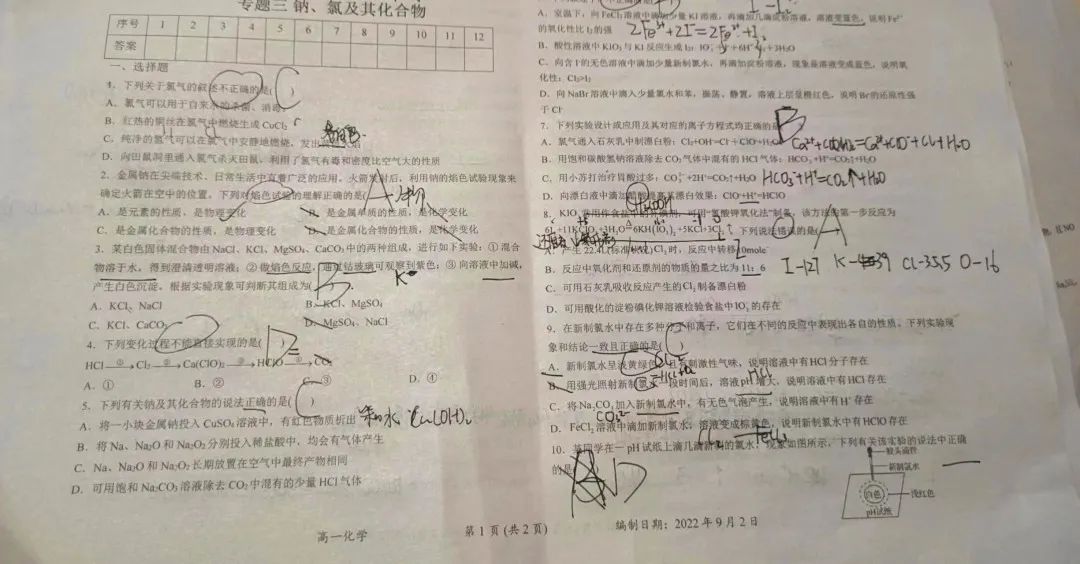 专题三 钠、氯及其化合物
序号 1 2 3 4 5 6 7 8 9 10 11 12
答案
一、选择题
1. 下列关于氯气的叙述不正确的是( C )
A. 氯气可以用于自来水的杀菌、消毒
B. 红热的铜丝在氯气中燃烧生成 CuCl₂
C. 纯净的氢气可以在氯气中安静地燃烧,发出
D. 向田鼠洞里通入氯气杀灭田鼠,利用了氯气有毒和密度比空气大的性质
2. 金属钠在尖端技术、日常生活中有着广泛的应用。火箭发射后,利用钠的焰色试验现象来
确定火箭在空中的位置。下列对焰色试验的理解正确的是( A )
A. 是元素的性质,是物理变化 B. 是金属单质的性质,是化学变化
C. 是金属化合物的性质,是物理变化 D. 是金属化合物的性质,是化学变化
3. 某白色固体混合物由 NaCl、KCl、MgSO₄、CaCO₃ 中的两种组成,进行如下实验:① 混合
物溶于水,得到澄清透明溶液;② 做焰色反应,通过钴玻璃可观察到紫色;③ 向溶液中加碱,
产生白色沉淀。根据实验现象可判断其组成为( B K
A. KCl、NaCl B. KCl、MgSO₄
C. KCl、CaCO₃ D. MgSO₄、NaCl
4. 下列变化过程不能直接实现的是( D )
HCl —①→ Cl₂ —②→ Ca(ClO)₂ —③→ HClO —④→ CO₂
A. ① B. ② C. ③ D. ④
5. 下列有关钠及其化合物的说法正确的是( C )
A. 将一小块金属钠投入 CuSO₄ 溶液中,有红色物质析出 和水 Cu(OH)₂
B. 将 Na、Na₂O 和 Na₂O₂ 分别投入稀盐酸中,均会有气体产生
C. Na、Na₂O 和 Na₂O₂ 长期放置在空气中最终产物相同
D. 可用饱和 Na₂CO₃ 溶液除去 CO₂ 中混有的少量 HCl 气体
A. 室温下,向 FeCl₃ 溶液中滴加少量 KI 溶液,再滴加几滴淀粉溶液,溶液变蓝色,说明 Fe³⁺
的氧化性比 I₂ 的强 2Fe³⁺+2I⁻=2Fe²⁺+I₂
B. 酸性溶液中 KIO₃ 与 KI 反应生成 I₂:
C. 向含 I⁻ 的无色溶液中滴加少量新制氯水,再滴加淀粉溶液,现象是溶液变成蓝色,说明氧
化性:Cl₂>I₂
D. 向 NaBr 溶液中滴入少量氯水和苯,振荡、静置,溶液上层呈橙红色,说明 Br⁻ 的还原性强
于 Cl⁻
7. 下列实验设计或应用及其对应的离子方程式均正确的是 B
A. 氯气通入石灰乳中制漂白粉:Cl₂+OH⁻=Cl⁻+ClO⁻+H₂O
B. 用饱和碳酸氢钠溶液除去 CO₂ 气体中混有的 HCl 气体:HCO₃⁻+H⁺=CO₂↑+H₂O
C. 用小苏打治疗胃酸过多:CO₃²⁻+2H⁺=CO₂↑+H₂O HCO₃⁻+H⁺=CO₂↑+H₂O
D. 向漂白液中滴加醋酸提高其漂白效果:ClO⁻+H⁺=HClO
8. KIO₃ 常用作食盐中的补碘剂,可用“氯酸钾氧化法”制备,该方法的第一步反应为
6I₂+11KClO₃+3H₂O=6KH(IO₃)₂+5KCl+3Cl₂↑。下列说法错误的是( A
A. 产生 22.4L(标准状况)Cl₂ 时,反应中转移 10mole⁻
B. 反应中氧化剂和还原剂的物质的量之比为 11:6 I-127 K-39 Cl-35.5 O-16
C. 可用石灰乳吸收反应产生的 Cl₂ 制备漂白粉
D. 可用酸化的淀粉碘化钾溶液检验食盐中 IO₃⁻ 的存在
9. 在新制氯水中存在多种分子和离子,它们在不同的反应中表现出各自的性质。下列实验现
象和结论一致且正确的是( )
A. 新制氯水呈浅黄绿色,且有刺激性气味,说明溶液中有 HCl 分子存在
B. 用强光照射新制氯水一段时间后,溶液 pH 增大,说明溶液中有 HCl 存在
C. 将 Na₂CO₃ 加入新制氯水中,有无色气泡产生,说明溶液中有 H⁺ 存在
D. FeCl₂ 溶液中滴加新制氯水,溶液变成棕黄色,说明新制氯水中有 HClO 存在
10. 某同学在一 pH 试纸上滴几滴新制的氯水,现象如图所示,下列有关该实验的说法中正确
的是 D
胶头滴管
新制氯水
白色
浅红色
pH试纸
高一化学 第 1 页 (共 2 页) 编制日期:2022 年 9 月 2 日